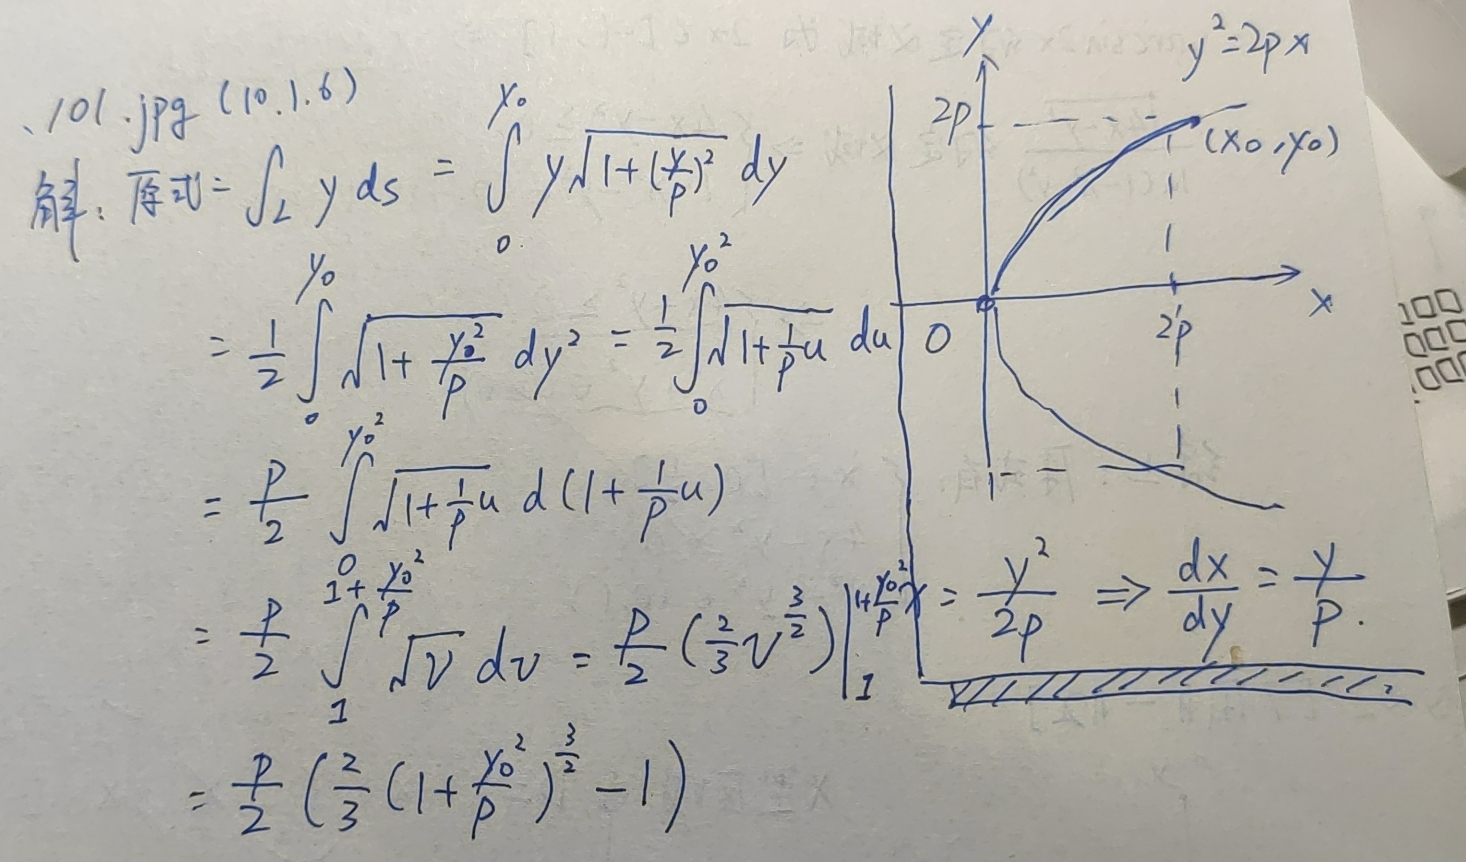 、101.jpg (10.1.6)
解:原式=∫_L y ds = ∫_0^{y₀} y√(1+(y/p)²) dy
= 1/2 ∫_0^{y₀} √(1+y₀²/p) dy² = 1/2 ∫_0^{y₀²} √(1+1/p u) du
= p/2 ∫_0^{y₀²} √(1+1/p u) d(1+1/p u)
= p/2 ∫_1^{1+y₀²/p} √v dv = p/2 (2/3 v^{3/2}) |_1^{1+y₀²/p}
= p/2 (2/3 (1+y₀²/p)^{3/2} - 1)
y
y²=2px
2p
(x₀,y₀)
0
2p
x
x = y²/2p ⇒ dx/dy = y/p.